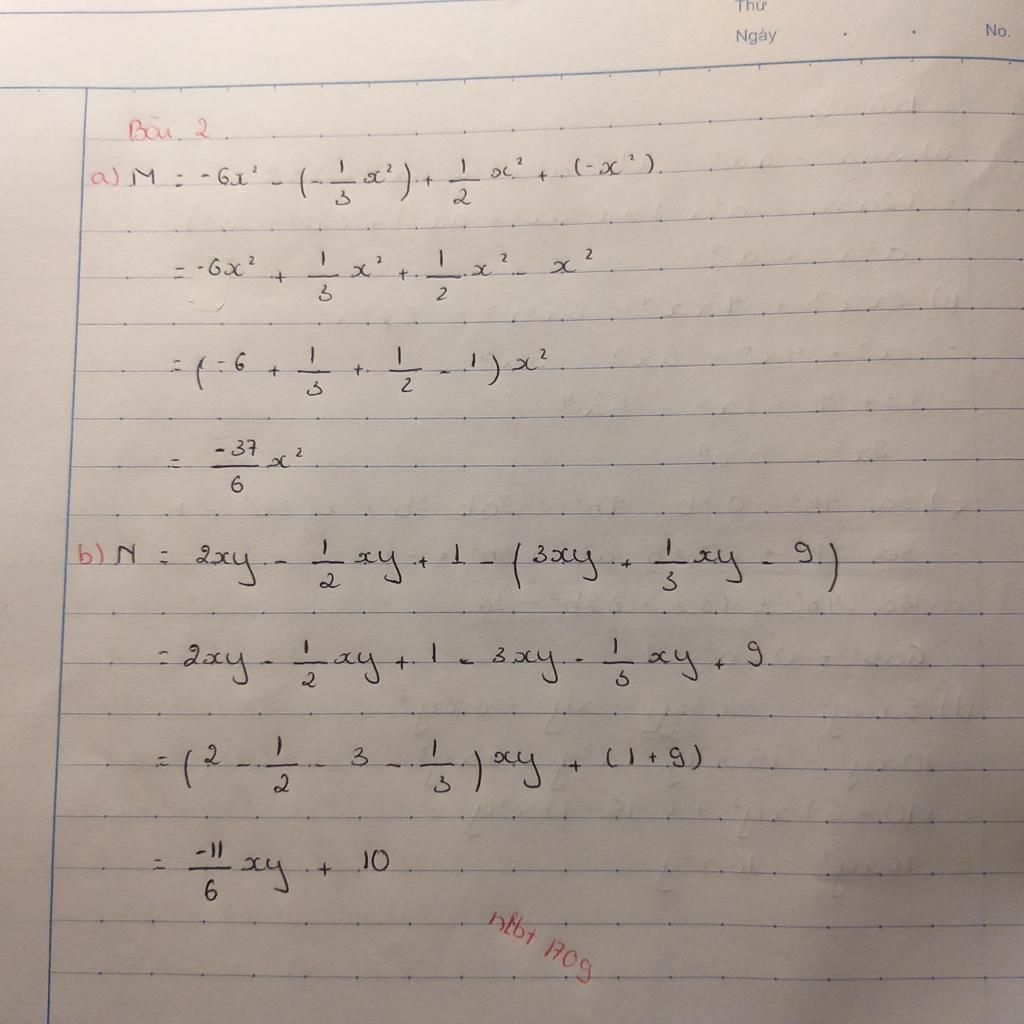 Thứ
Ngày . . No.
Bài 2
a) M = -6x² - (-1/3 x²) + 1/2 x² + (-x²)
= -6x² + 1/3 x² + 1/2 x² - x²
= (-6 + 1/3 + 1/2 - 1) x²
= -37/6 x²
b) N = 2xy - 1/2 xy + 1 - (3xy + 1/3 xy - 9)
= 2xy - 1/2 xy + 1 - 3xy - 1/3 xy + 9
= (2 - 1/2 - 3 - 1/3) xy + (1 + 9)
= -11/6 xy + 10